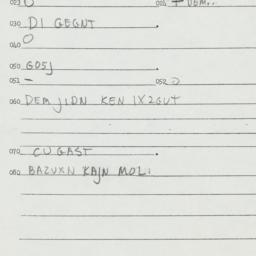 023 O 024 + DEM..
030 DI GEGNT .
040 O
050 G05J .
051 – 052 O
060 DEM JIDN KEN IX2GUT
070 CU GAST .
080 BAZUXN KAJN MOL: